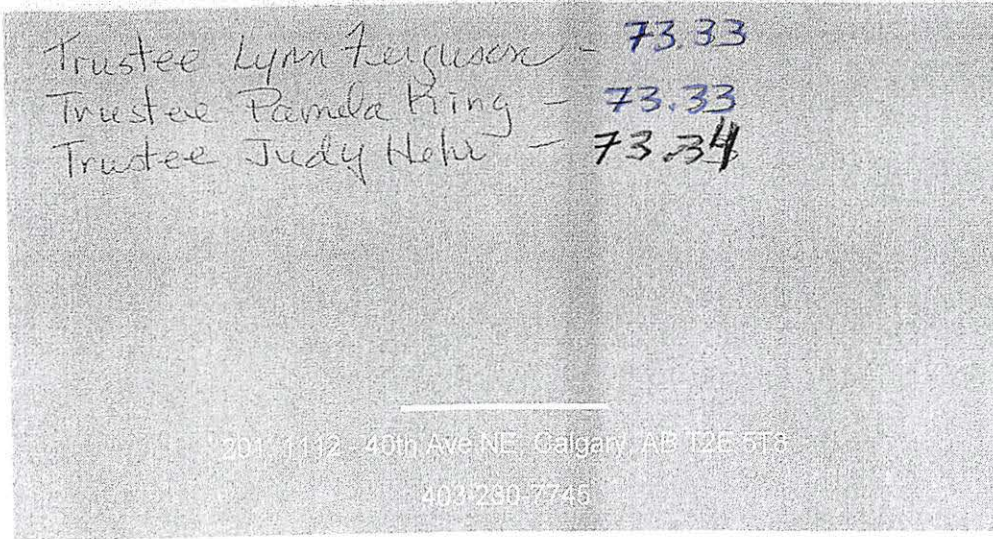 Trustee Lynn Ferguson - 73.33
Trustee Pamela King - 73.33
Trustee Judy Hehr - 73.34
201 1112 - 40th Ave NE, Calgary, AB T2E 5T8
403-230-7745